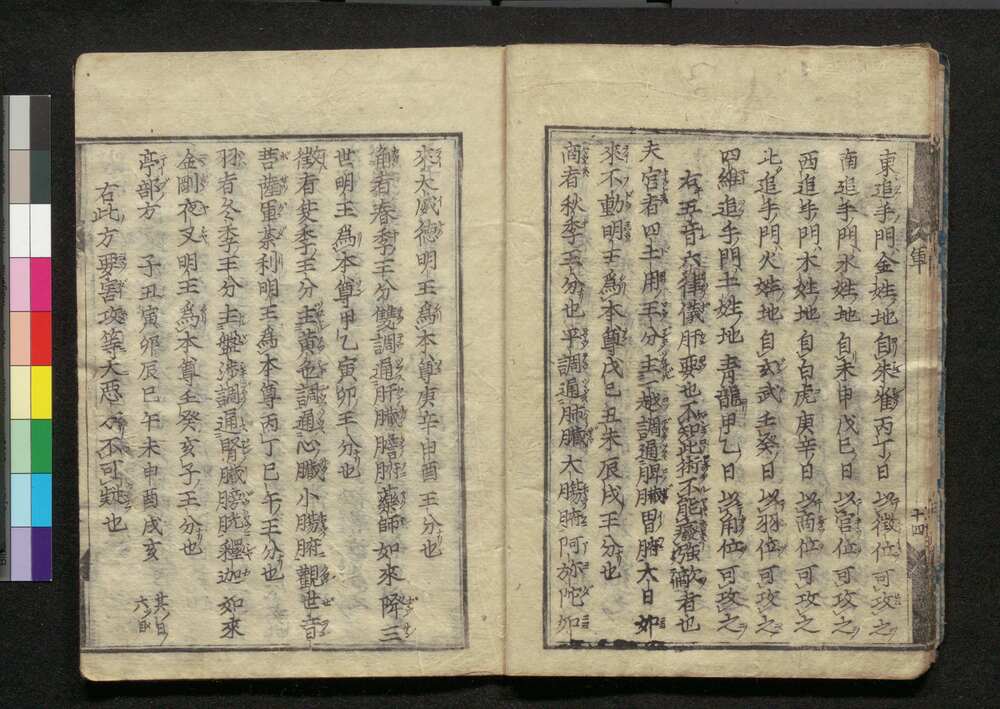 東追手門金姓地自朱雀丙丁日以徴位可攻之
南追手門水姓地自未申戊巳日以宮位可攻之
西追手門木姓地自白虎庚辛日以商位可攻之
北追手門火姓地自玄武壬癸日以羽位可攻之
四維追手門土姓地青龍甲乙日以角位可攻之
右五音六律儀肝要也不知此術不能療強敵者也
夫宮者四土用王分主一越調通脾臓胃腑大日如
來不動明王為本尊戊巳丑未辰戌王分也
商者秋季王分也平調通肺臓大腸腑阿弥陀如
來大威徳明王為本尊庚辛申酉王分也
角者春季王分雙調通肝臓膽腑藥師如來降三
世明王為本尊甲乙寅卯王分也
徴者
季王分主黄
色調通心臓小腸腑觀世音
菩薩軍荼利明王為本尊丙丁巳午王分也
羽者冬季王分主盤渉調通腎臓膀胱釋迦如來
金剛夜叉明王為本尊壬癸亥子王分也
亭部方 子丑寅卯辰巳午未申酉戌亥 其日六目
右此方要害攻等大惡方不可
也
軍
十四